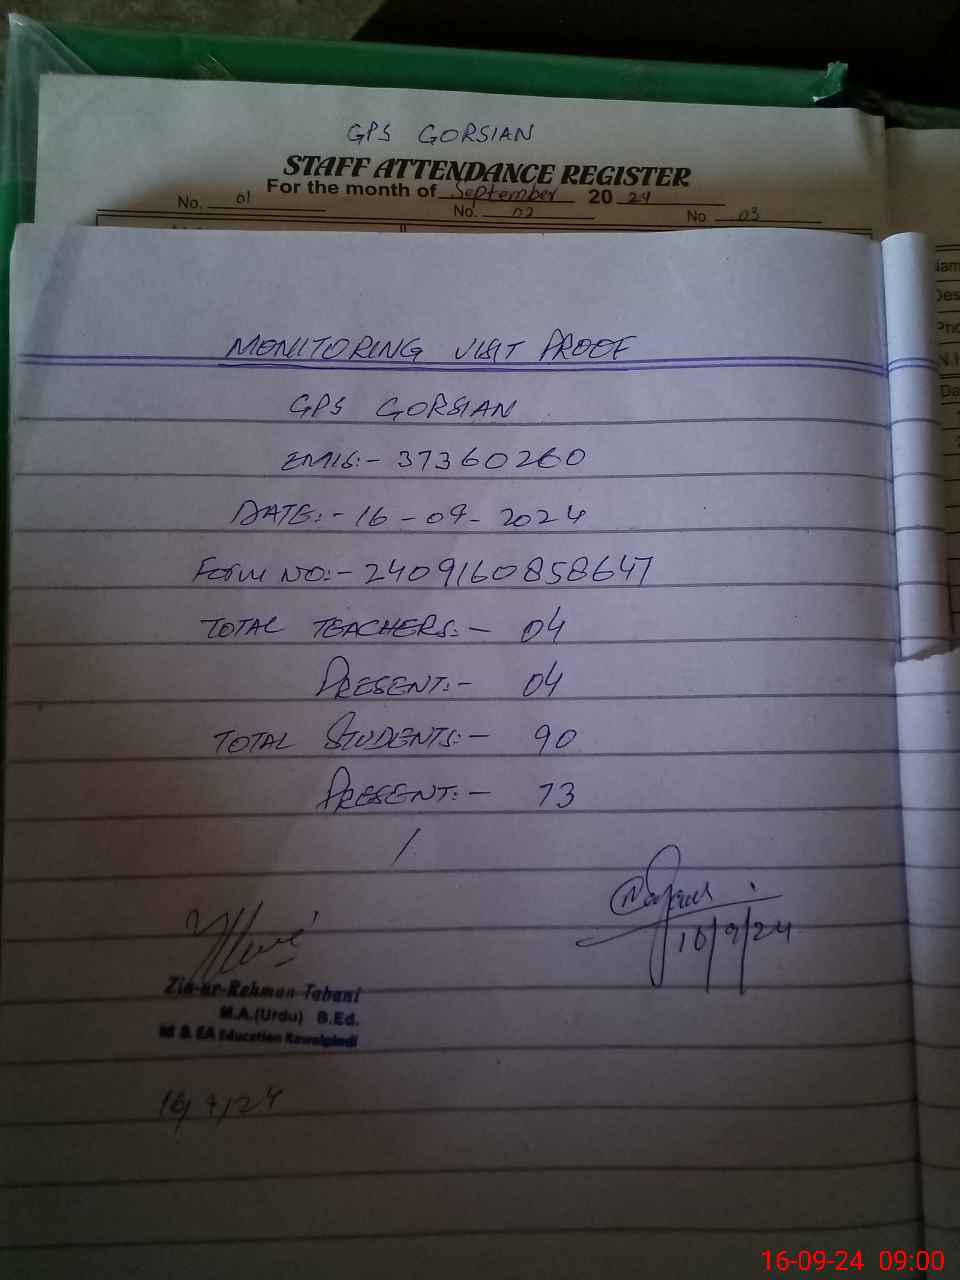 GPS GORSIAN
STAFF ATTENDANCE REGISTER
For the month of September 2024
No. 01 No. 02 No. 03
MONITORING VISIT PROOF
GPS GORSIAN
EMIS:- 37360260
DATE:- 16-09-2024
Form NO:- 2409160858647
TOTAL TEACHERS:- 04
PRESENT:- 04
TOTAL STUDENTS:- 90
PRESENT:- 73
16/9/24
Zia-ur-Rehman Tabani
M.A.(Urdu) B.Ed.
M & EA Education Rawalpindi
16/9/24
16-09-24 09:00